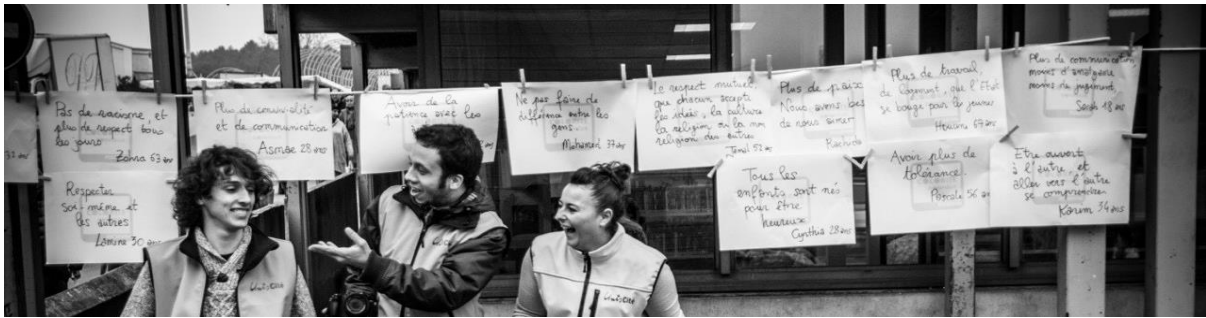 32 ans
Pas de racisme, et
plus de respect tous
les jours
Zohra 63 ans
Respecter
soi-même et
les autres
Lamine 30 ans
Plus de convivialité
et de communication
Asmae 28 ans
Avoir de la
patience avec les
Ne pas faire de
différence entre les
gens
Mohamed 37 ans
Le respect mutuel,
que chacun accepte
les idées, la culture
la religion ou la non
religion des autres
Jamil 52 ans
Plus de paix
Nous avons
de nous aimer
Rachida
Tous les
enfants sont nés
pour être
heureux
Cynthia 28 ans
Plus de travail,
de logement, que l'état
se bouge pour les jeunes
67 ans
Avoir plus de
tolérance.
Pascale 56 ans
Plus de communication,
moins d'amalgame
moins de jugement,
Sarah 18 ans
Etre ouvert
à l'autre, et
aller vers l'autre
se comprendre
Karim 34 ans
unisCité
unisCité
unisCité